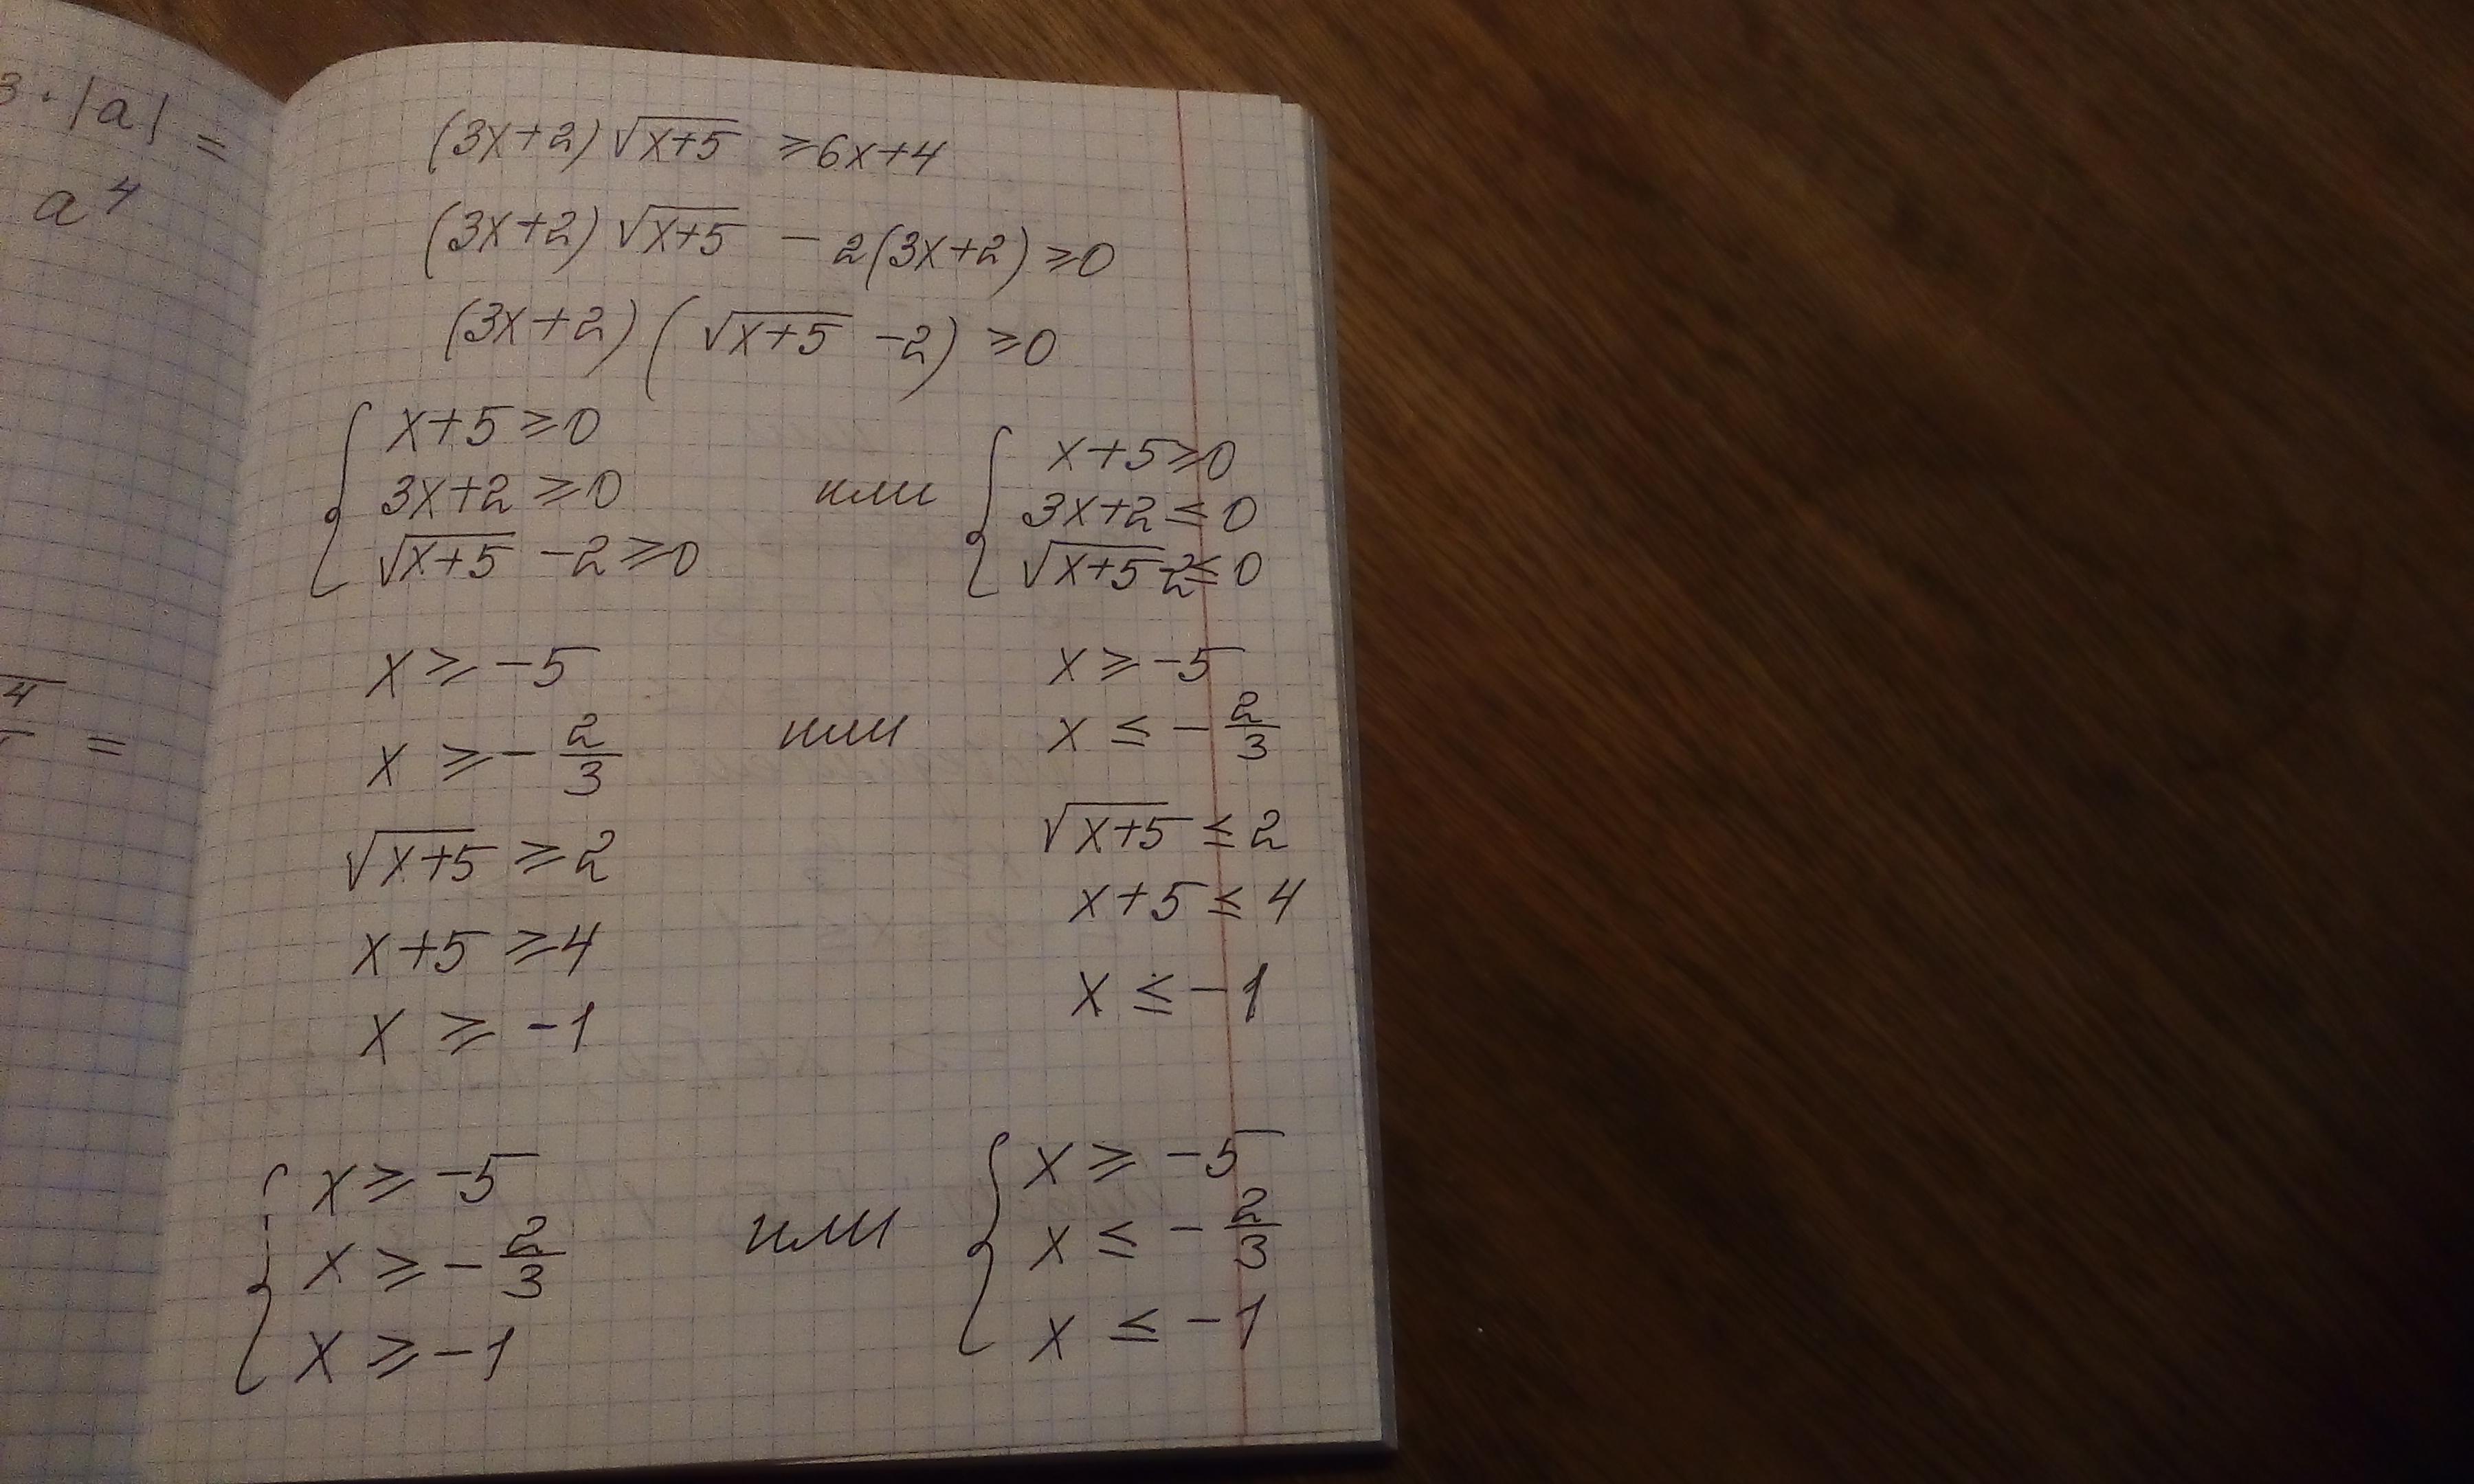 3 · |a| =
a⁴
4
=
(3x+2)√(x+5) ⩾ 6x+4
(3x+2)√(x+5) − 2(3x+2) ⩾ 0
(3x+2)(√(x+5) − 2) ⩾ 0
{ x+5 ⩾ 0
3x+2 ⩾ 0
√(x+5) − 2 ⩾ 0
или
{ x+5 ⩾ 0
3x+2 ≤ 0
√(x+5) − 2 ≤ 0
x ⩾ −5
x ⩾ −2/3
√(x+5) ⩾ 2
x+5 ⩾ 4
x ⩾ −1
или
x ⩾ −5
x ≤ −2/3
√(x+5) ≤ 2
x+5 ≤ 4
x ≤ −1
{ x ⩾ −5
x ⩾ −2/3
x ⩾ −1
или
{ x ⩾ −5
x ≤ −2/3
x ≤ −1